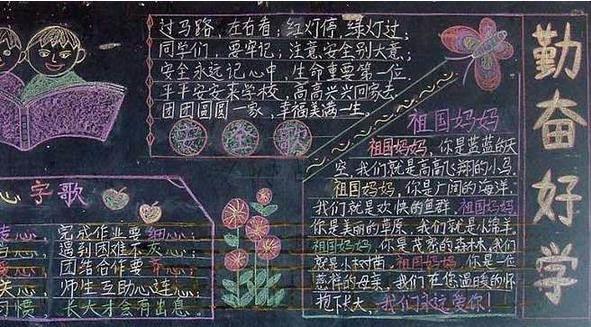 过马路，左右看；红灯停，绿灯过；
同学们，要牢记；注意安全别大意；
安全永远记心中 生命重要第一位.
平平安安来学校，高高兴兴回家去.
团团圆圆一家，幸福美满一生。
安全歌
祖国妈妈
祖国妈妈，你是蓝蓝的天
空，我们就是高高飞翔的小鸟.
祖国妈妈，你是广阔的海洋.
我们就是欢快的鱼群.祖国妈妈，
你是美丽的草原，我们就是小绵羊.
祖国妈妈，你是茂密的森林，我们
就是小树苗，祖国妈妈，你是一位
慈祥的母亲，我们在您温暖的怀
抱下长大，我们永远爱你！
勤奋好学
心字歌
心 完成作业要细心；
心 遇到困难不灰心；
心 团结合作要
心. 师生互助心连心；
习惯，长大才会有出息.